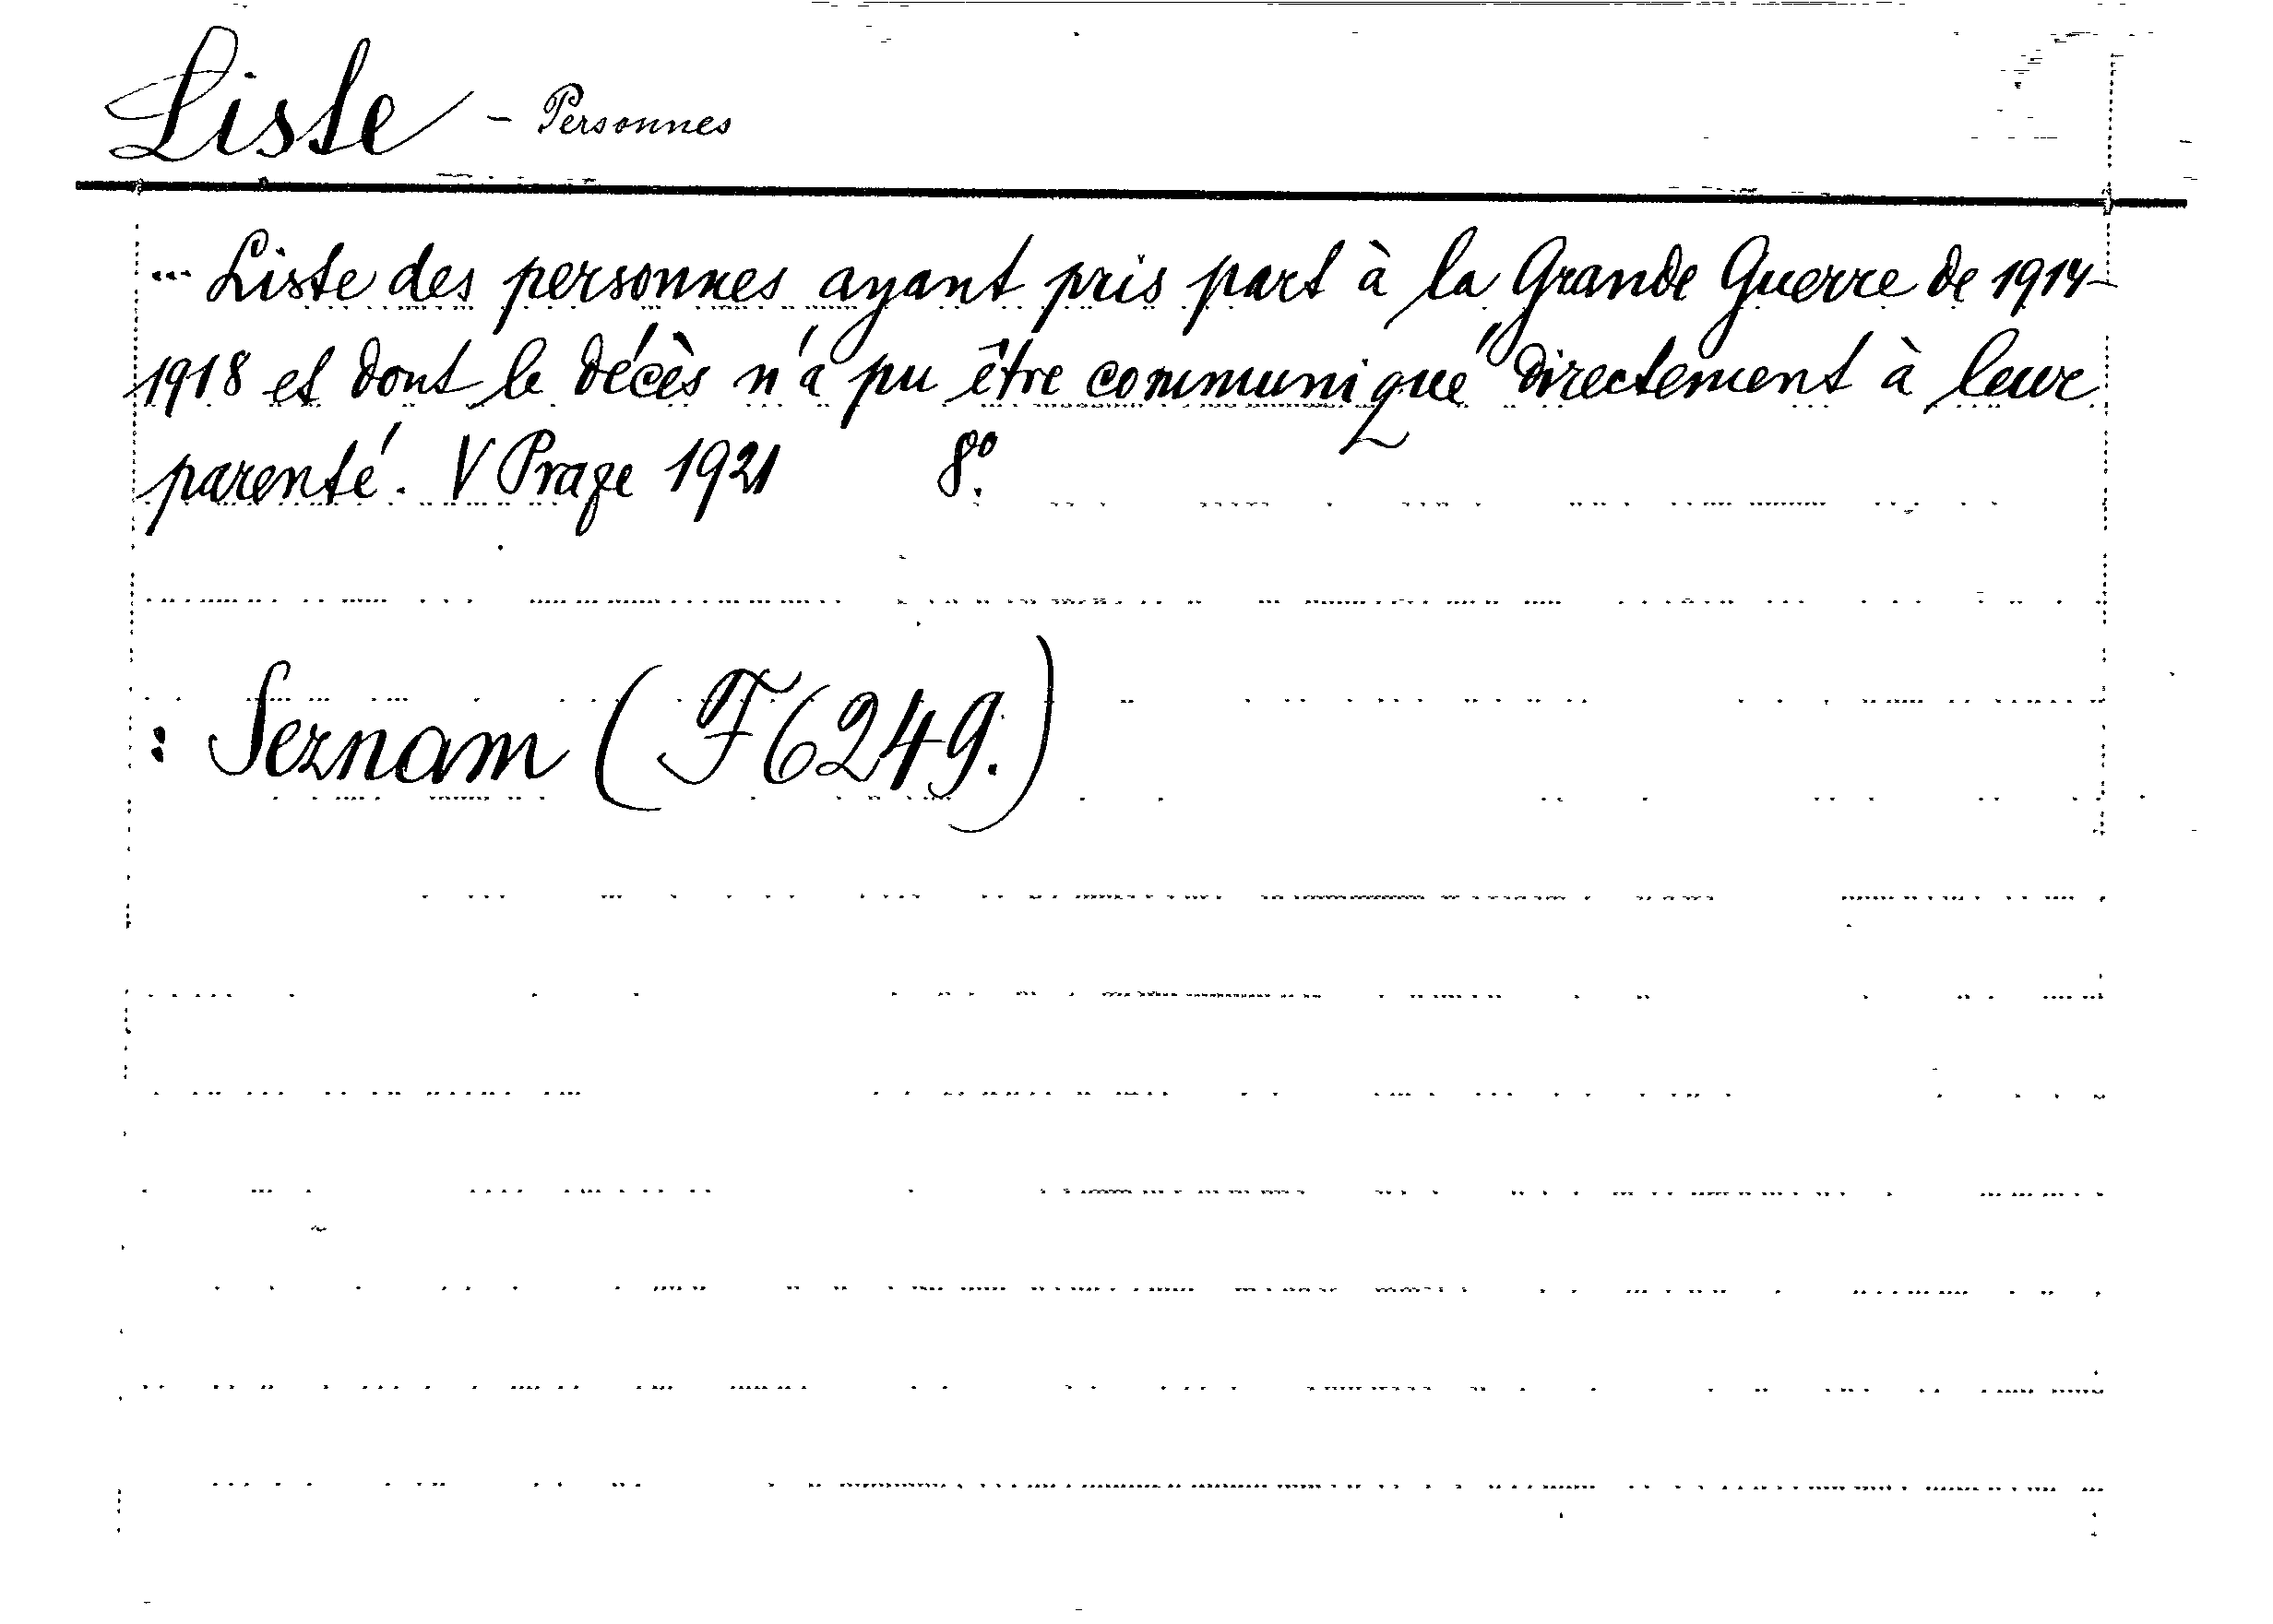 Liste - Personnes
... Liste des personnes ayant pris part à la Grande Guerre de 1914-
1918 et dont le décès n'a pu être communiqué directement à leur
parenté. V Praze 1921 8º.
: Seznam (F 6249.)